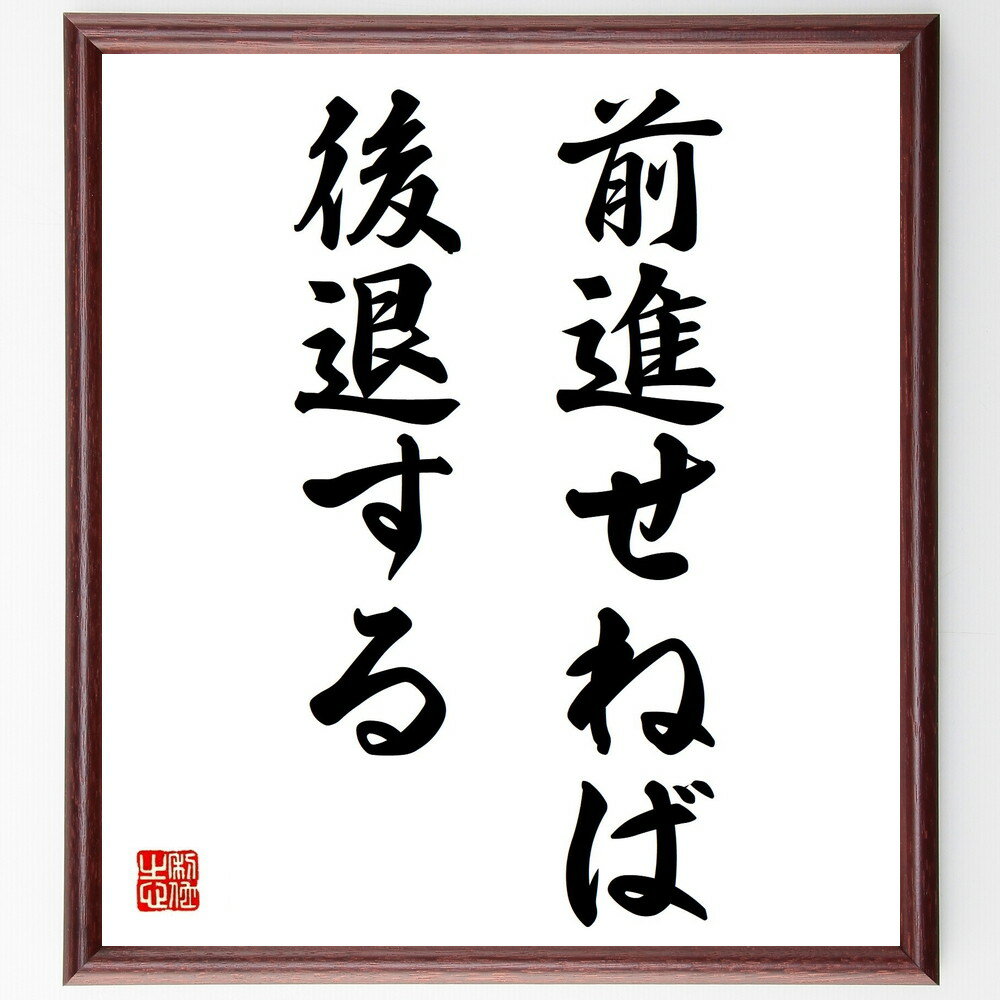 前進せねば
後退する